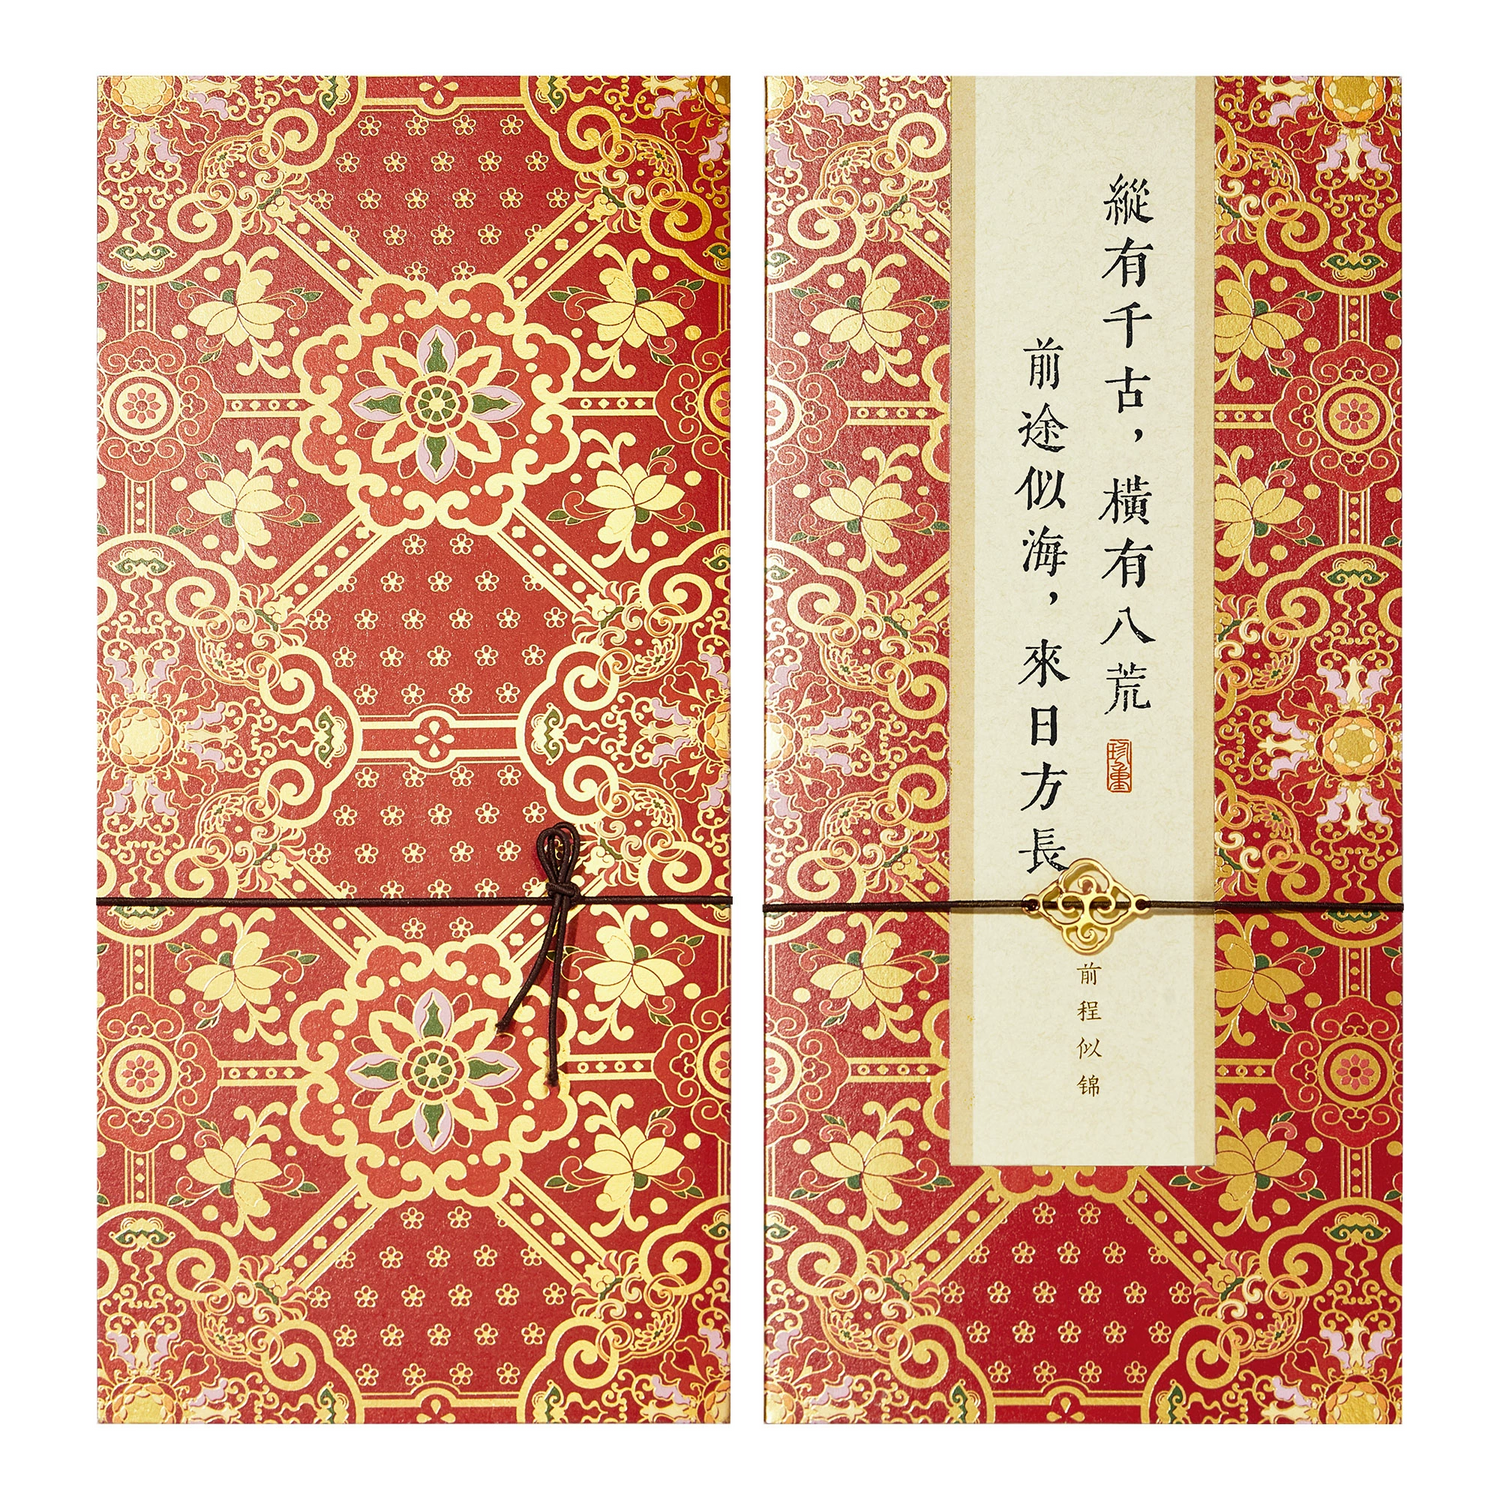 縱有千古，橫有八荒
前途似海，來日方長
珍重
前程似锦